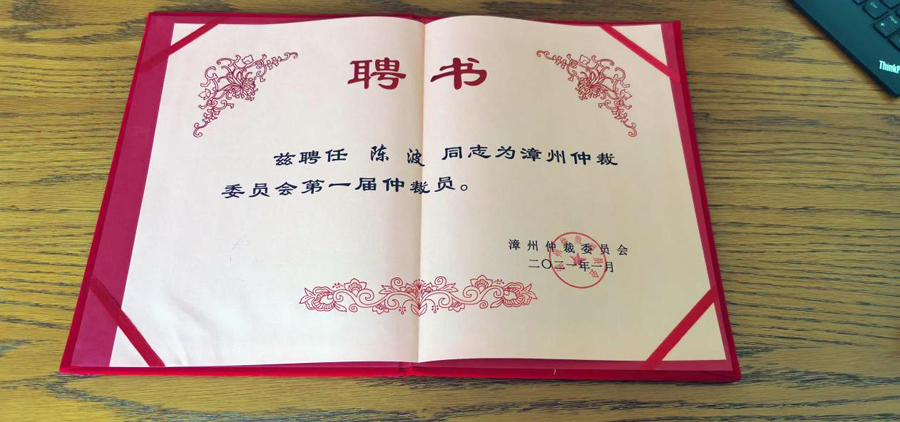 聘书
兹聘任 陈 波 同志为漳州仲裁
委员会第一届仲裁员。
漳州仲裁委员会
二〇二一年一月
Think